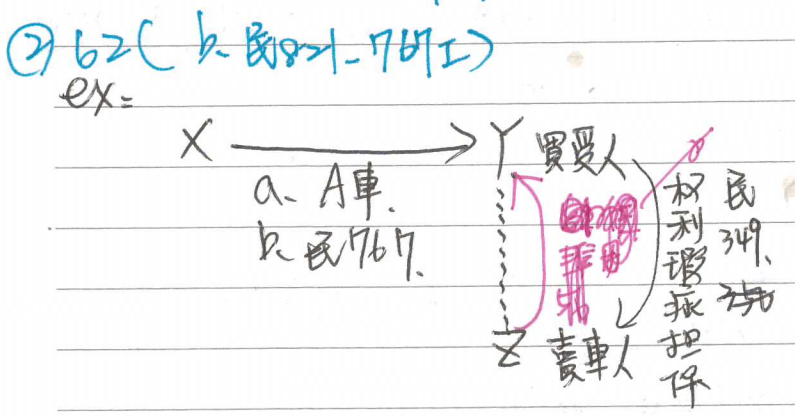 ② 62( b、民821-767I)
ex=
X Y 買受人
a、A車、
b、民767、
權利瑕疵担保
民349、350
Z 賣車人